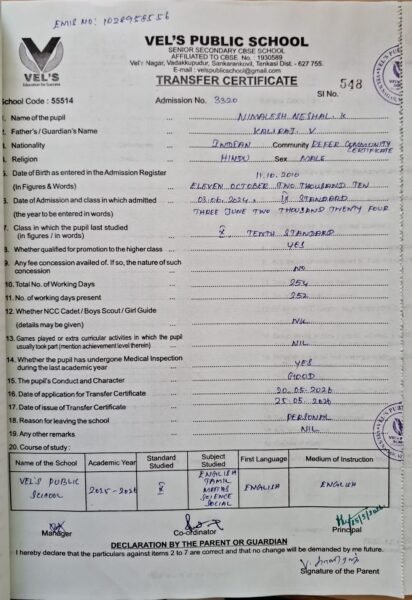 EMIS NO: 1028958556
VEL'S
Education for Success
VEL'S PUBLIC SCHOOL
SENIOR SECONDARY CBSE SCHOOL
AFFILIATED TO CBSE. No. : 1930589
Vel's Nagar, Vadakkupudur, Sankarankovil, Tenkasi Dist. - 627 755.
E-mail : velspublicschool@gmail.com
TRANSFER CERTIFICATE
Sl No. 548
School Code : 55514
Admission No. 3320
1. Name of the pupil ... NIMALESH NESHAL. K
2. Father's / Guardian's Name ... KALIRAJ. V
3. Nationality ... INDIAN Community REFER COMMUNITY CERTIFICATE
4. Religion ... HINDU Sex MALE
5. Date of Birth as entered in the Admission Register 11.10.2010
(In Figures & Words) ... ELEVEN OCTOBER TWO THOUSAND TEN
6. Date of Admission and class in which admitted ... 03.06.2024, IX STANDARD
(the year to be entered in words) ... THREE JUNE TWO THOUSAND TWENTY FOUR
7. Class in which the pupil last studied
(in figures / in words) ... X TENTH STANDARD
8. Whether qualified for promotion to the higher class ... YES
9. Any fee concession availed of. If so, the nature of such
concession ... NO
10. Total No. of Working Days ... 254
11. No. of working days present ... 252
12. Whether NCC Cadet / Boys Scout / Girl Guide
(details may be given) ... NIL
13. Games played or extra curricular activities in which the pupil
usually took part (mention achievement level therein) ... NIL
14. Whether the pupil has undergone Medical Inspection
during the last academic year ... YES
15. The pupil's Conduct and Character ... GOOD
16. Date of application for Transfer Certificate ... 20.05.2026
17. Date of issue of Transfer Certificate ... 25.05.2026
18. Reason for leaving the school ... PERSONAL
19. Any other remarks ... NIL
20. Course of study :
Name of the School Academic Year Standard Studied Subject Studied First Language Medium of Instruction
VEL'S PUBLIC SCHOOL 2025-2026 X ENGLISH TAMIL MATHS SCIENCE SOCIAL ENGLISH ENGLISH
Manager Co-ordinator Principal
DECLARATION BY THE PARENT OR GUARDIAN
I hereby declare that the particulars against items 2 to 7 are correct and that no change will be demanded by me future.
Signature of the Parent